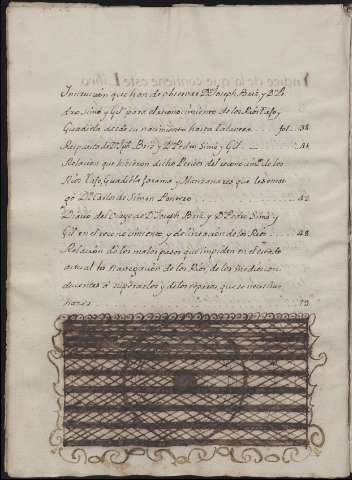 Instruccion que han de observar Dn. Joseph Briz, y Dn. Pe
dro Simo y Gil para el reconocimiento de los Rios Tajo,
Guadiela desde su nacimiento hasta Talavera . . . . fol. . 38
Respuesta de Dn. Jph. Briz y Dn. Pedro Simo y Gil
Relacion que hizieron dichos Peritos del reconocimto. de los
Rios Tajo, Guadiela Jarama y Manzanares que
Dn. Carlos de Simon Pontero . . . 42
Diario del Viage de Dn. Joseph Briz y Dn. Pedro Simo y
Gil en el reconocimiento, y delineacion de los Rios . . . 48
Relacion de los malos pasos que impiden en el estado
actual la navegacion de los Rios, de los medios con
ducentes a superarlos y de los reparos que se necesitan
hazer